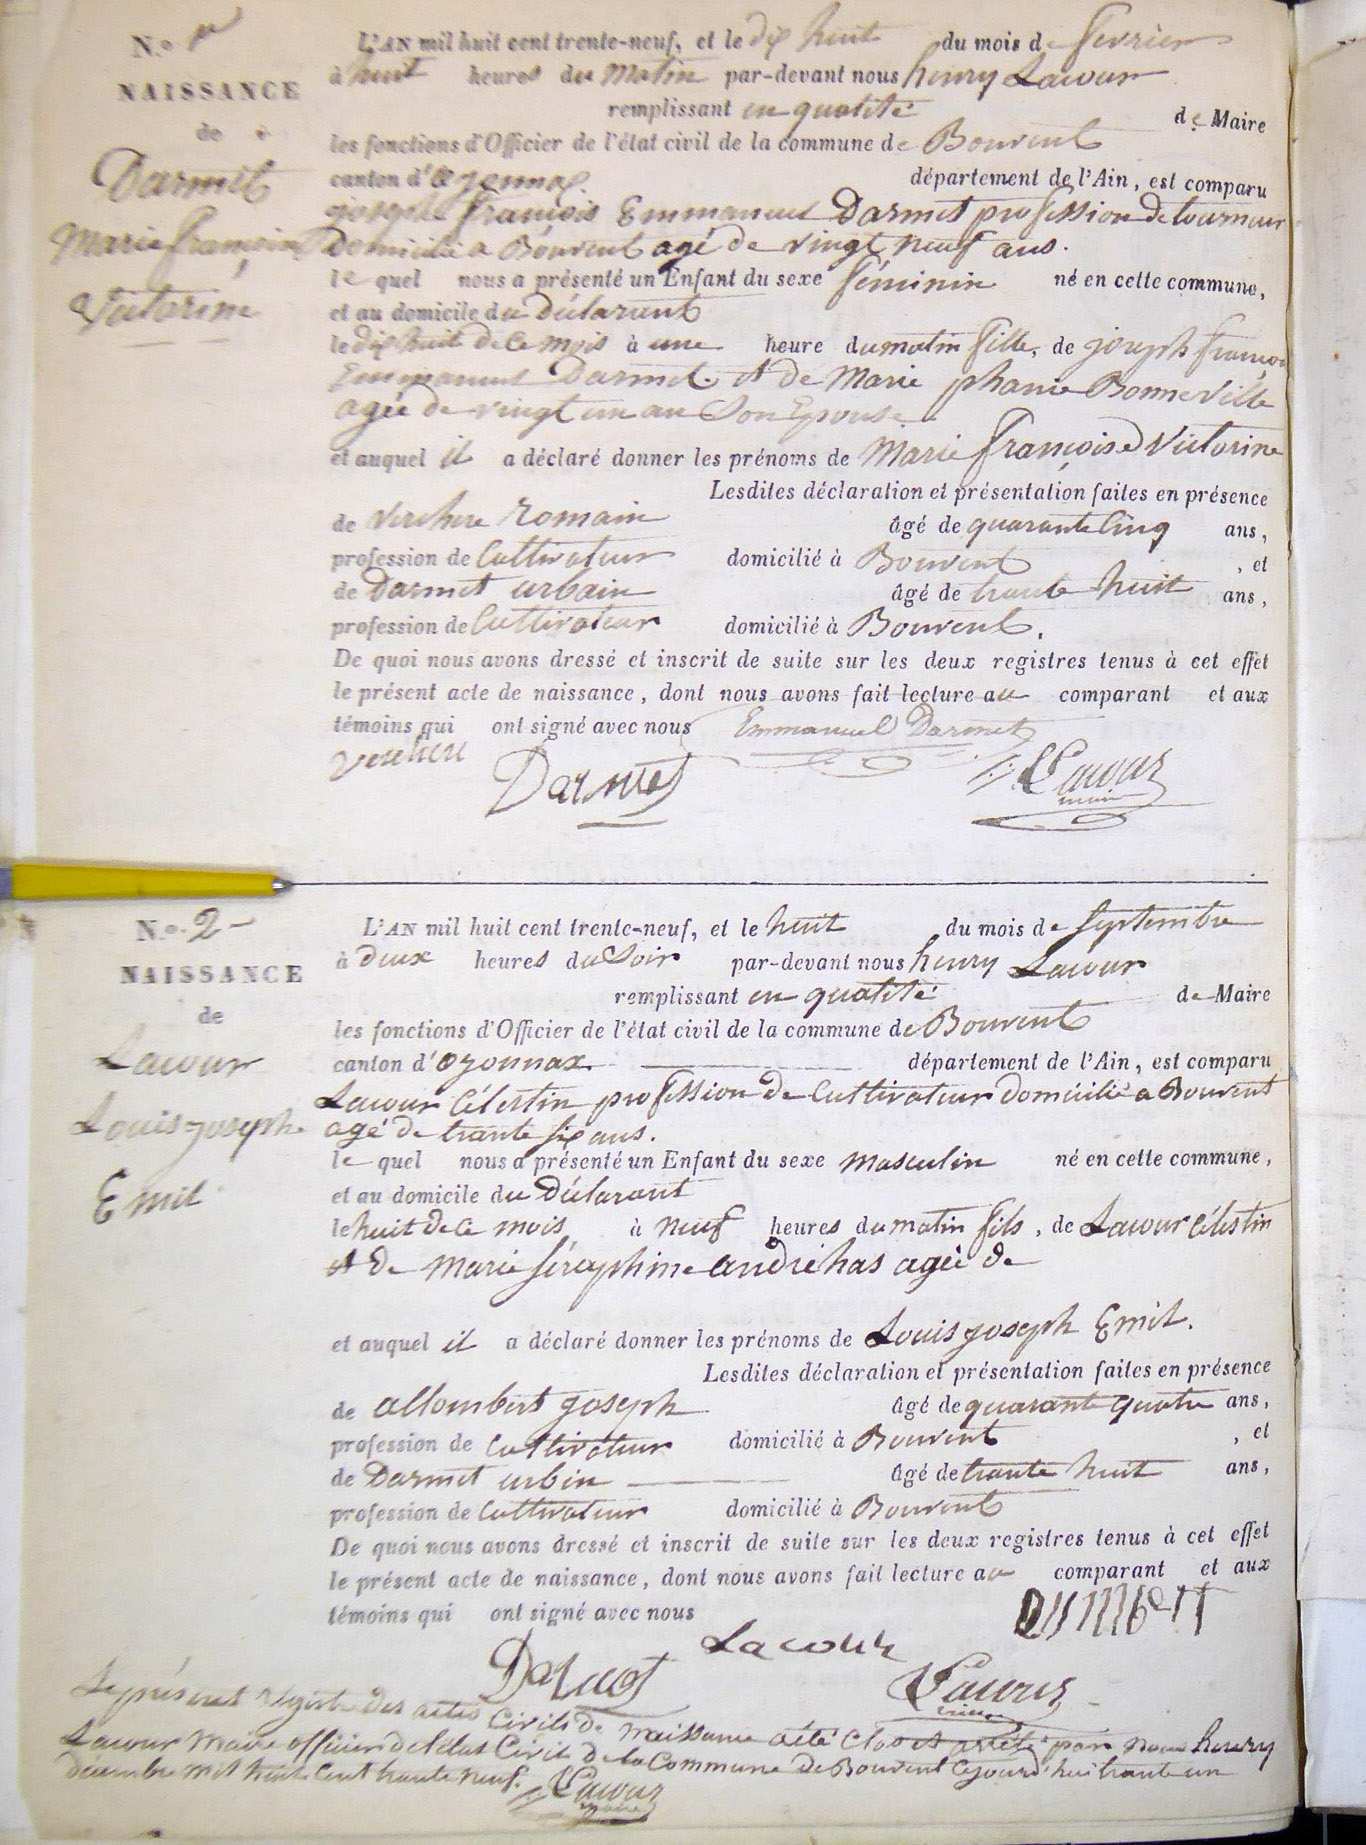 N.o 1er
NAISSANCE
de
Darmet
Marie françoise
Victorine
L'AN mil huit cent trente-neuf, et le dix huit du mois de fevrier
à huit heures du Matin par-devant nous henry Lacour
remplissant en qualité de Maire
les fonctions d'Officier de l'état civil de la commune de Bouvent
canton d'oyonnax département de l'Ain, est comparu
joseph françois Emmanuel Darmet profession de tourneur
Domicilié a Bouvent agé de vingt neuf ans.
le quel nous a présenté un Enfant du sexe féminin né en cette commune,
et au domicile du Déclarant
le dix huit de ce mois à une heure du matin fille, de joseph françois
Emmanuel Darmet. et de Marie phanie Bonneville
agée de vingt un an Son Epouse
et auquel il a déclaré donner les prénoms de Marie françoise Victorine
Lesdites déclaration et présentation faites en présence
de Verchere Romain âgé de quarante cinq ans,
profession de Cultivateur domicilié à Bouvent, et
de Darmet urbain âgé de trante huit ans,
profession de Cultivateur domicilié à Bouvent.
De quoi nous avons dressé et inscrit de suite sur les deux registres tenus à cet effet
le présent acte de naissance, dont nous avons fait lecture au comparant et aux
témoins qui ont signé avec nous Emmanuel Darmet
Verchere Darmet Lacour
maire
N.o 2
NAISSANCE
de
Lacour
Louis joseph
Emil
L'AN mil huit cent trente-neuf, et le huit du mois de Septembre
à deux heures du Soir par-devant nous henry Lacour
remplissant en qualité de Maire
les fonctions d'Officier de l'état civil de la commune de Bouvent
canton d'oyonnax département de l'Ain, est comparu
Lacour Célestin profession de Cultivateur domicilié a Bouvent
agé de trante six ans.
le quel nous a présenté un Enfant du sexe masculin né en cette commune,
et au domicile du Déclarant
le huit de ce mois à neuf heures du matin fils, de Lacour Célestin
et de Marie Séraphine andréhas agée de
et auquel il a déclaré donner les prénoms de Louis joseph Emil.
Lesdites déclaration et présentation faites en présence
de allombert joseph âgé de quarante quatre ans,
profession de Cultivateur domicilié à Bouvent, et
de Darmet urbin âgé de trante huit ans,
profession de Cultivateur domicilié à Bouvent
De quoi nous avons dressé et inscrit de suite sur les deux registres tenus à cet effet
le présent acte de naissance, dont nous avons fait lecture au comparant et aux
témoins qui ont signé avec nous
Lacour
Darmet Lacour
maire
Le présent régistre des actes Civils de Naissance a été Clos et arrêté par nous henry
Lacour Maire officier de l'état Civil de la Commune de Bouvent Cejourd'hui trante un
decembre mil huit Cent trante neuf. Lacour
maire